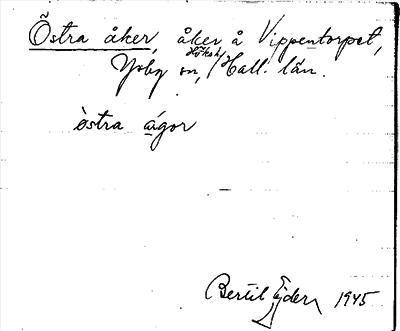 Östra åker, åker å Vippentorpet,
Ysby sn, Höks h / Hall. län.
östra áᶦgor
Bertil Ejder 1945